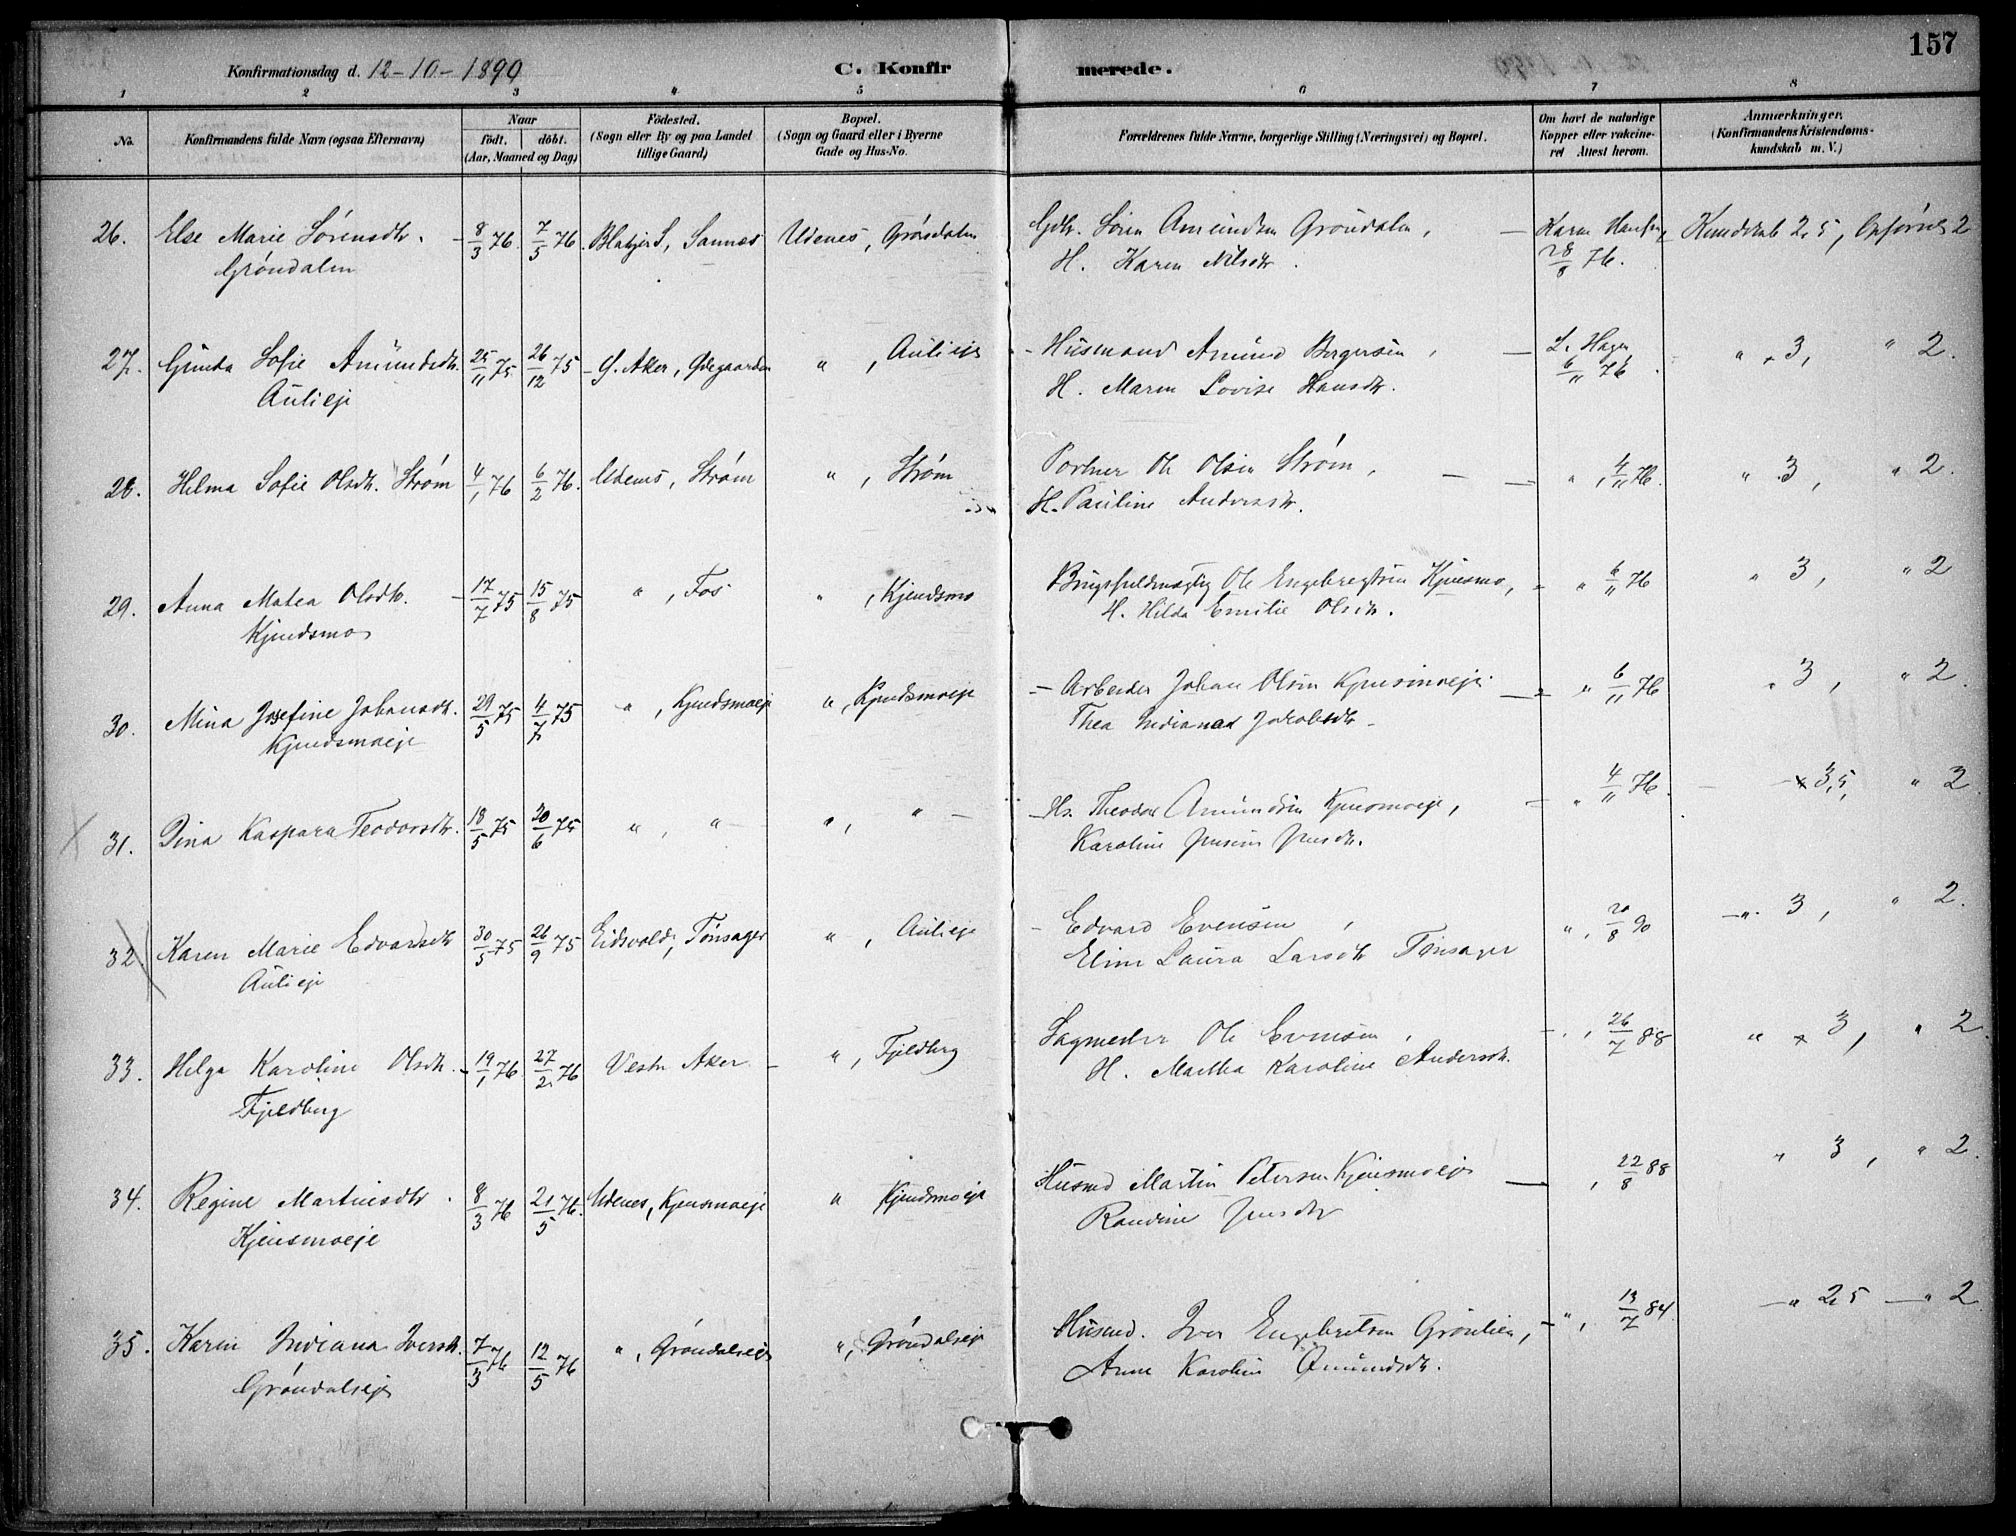 157
Konfirmationsdag d. 12-10-1890 C. Konfirmerede.
1 2 3 4 5 6 7 8
No. Konfirmandens fulde Navn (ogsaa Efternavn) Naar født. døbt. (Aar, Maaned og Dag) Fødested. (Sogn eller By og paa Landet tillige Gaard) Bopæl. (Sogn og Gaard eller i Byerne Gade og Hus-No. Forældrenes fulde Navne, borgerlige Stilling (Næringsvei) og Bopæl. Om havt de naturlige Kopper eller vakcineret Attest herom. Anmærkninger. (Konfirmandens Kristendomskundskab m. V.)
26. Else Marie Sørensdtr. 8/3 76. 7/5 76. Sannes Udenes, Grøndalen Gdbr. Søren Amundsen Grøndalen, Karen Hansen Kundskab 2,5, Opførsel 2
Grøndalen H. Karen Nilsdtr. 28/8 76.
27. Gunda Sofie Amundsdtr. 25/11 75. 26/12 75 G. Aker, Ødegaarden " , Aulieje Husmand Amund Bergersen, L. Hagen " 3, " 2.
Aulieje H. Maren Lovise Hansdtr. 6/11 76.
28. Helma Sofie Olsdtr. Strøm 4/1 76 6/2 76. Udenes, Strøm " , Strøm Portner Ole Olsen Strøm, " , 4/11 76. " 3, " 2.
H. Pauline Andersdtr.
29. Anna Matea Olsdtr. 17/7 75 15/8 75 " , Fos " , Kjendsmo Brugsfuldmægtig Ole Engebregtsen Kjensmo, " 6/11 76 " 3, " 2
Kjendsmo H. Hilda Emilie Olsdtr.
30. Mina Josefine Johansdtr. 29/5 75 4/7 75 " , Kjendsmoeje " , Kjendsmoeje Arbeider Johan Olsen Kjensmoeje " 6/11 76 " 3, " 2.
Kjendsmoeje Thea Indianna Jakobsdtr.
31. Dina Kaspara Teodorsdtr. 18/5 75 20/6 75 " , " " , " Hs. Theodor Amundsen Kjensmoeje, " 4/11 76. 3,5, " 2
Karoline Jensine Jensdtr.
32. Karen Marie Edvardsdtr 30/5 75 26/9 75 Eidsvold, Tønsager " , Aulieje Edvard Evensen, " , 20/8 90 " 3, " 2.
Aulieje Eline Laura Larsdtr Tønsager
33. Helga Karoline Olsdtr. 19/1 76 27/2 76 Vestre Aker " , Fjeldberg Sagmester Ole Evensen, " , 26/7 88 " 3, " 2
Fjeldberg H. Martha Karoline Andersdtr.
34. Regine Martinsdtr. 8/3 76 21/5 76. Udenes, Kjensmoeje " Kjendsmoeje Husmd Martin Petersen Kjensmoeje , 22/8 88 " 3, " 2.
Kjensmoeje Randine Jensdtr
35. Karen Indiana Iversdtr. 7/3 76 12/5 76 " , Grøndalseje " , Grøndalseje Husmd. Iver Engebretsen Grønlien, " , 13/7 84 " 2,5 " 2
Grøndalseje Anne Karoline Amundsdtr.